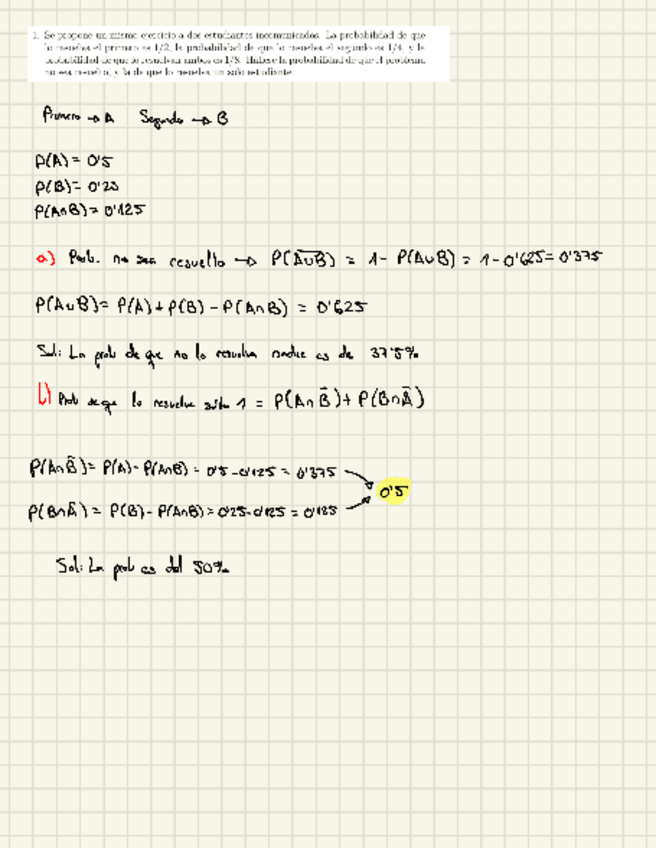 1. Se propone un mismo ejercicio a dos estudiantes incomunicados. La probabilidad de que
lo resuelva el primero es 1/2, la probabilidad de que lo resuelva el segundo es 1/4, y la
probabilidad de que lo resuelvan ambos es 1/8. Hállese la probabilidad de que el problema
no sea resuelto, y la de que lo resuelva un solo estudiante.
Primero → A Segundo → B
P(A) = 0'5
P(B) = 0'25
P(A∩B) = 0'125
a) Prob. no sea resuelto → P(A̅∪̅B̅) = 1 - P(A∪B) = 1 - 0'625 = 0'375
P(A∪B) = P(A) + P(B) - P(A∩B) = 0'625
Sol: La prob de que no lo resuelva nadie es de 37'5%
b) Prob de que lo resuelva sólo 1 = P(A∩B̅) + P(B∩A̅)
P(A∩B̅) = P(A) - P(A∩B) = 0'5 - 0'125 = 0'375
0'5
P(B∩A̅) = P(B) - P(A∩B) = 0'25 - 0'125 = 0'125
Sol: La prob es del 50%